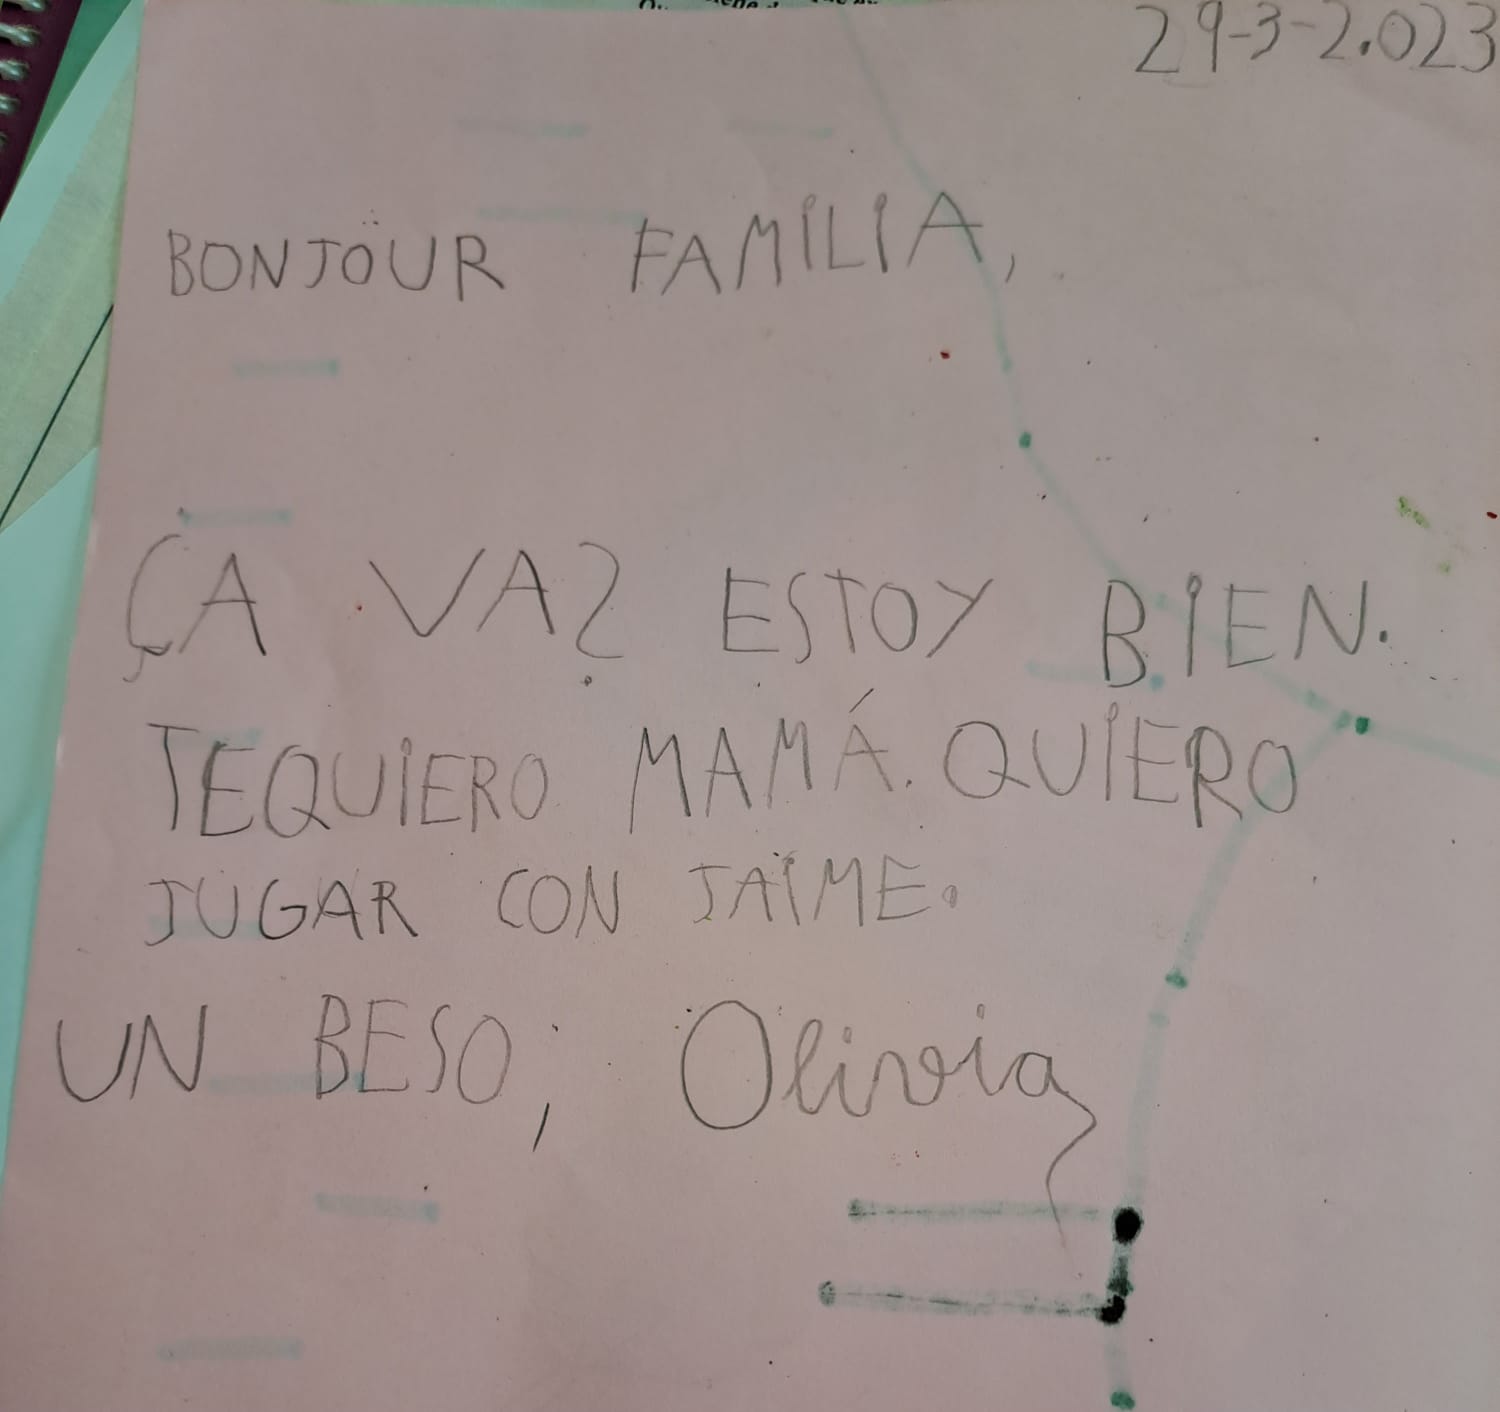 29-3-2.023
BONJÖUR FAMILIA,
ÇA VA? ESTOY BIEN.
TEQUIERO MAMÁ. QUIERO
JUGAR CON JAÏME.
UN BESO, Olivia